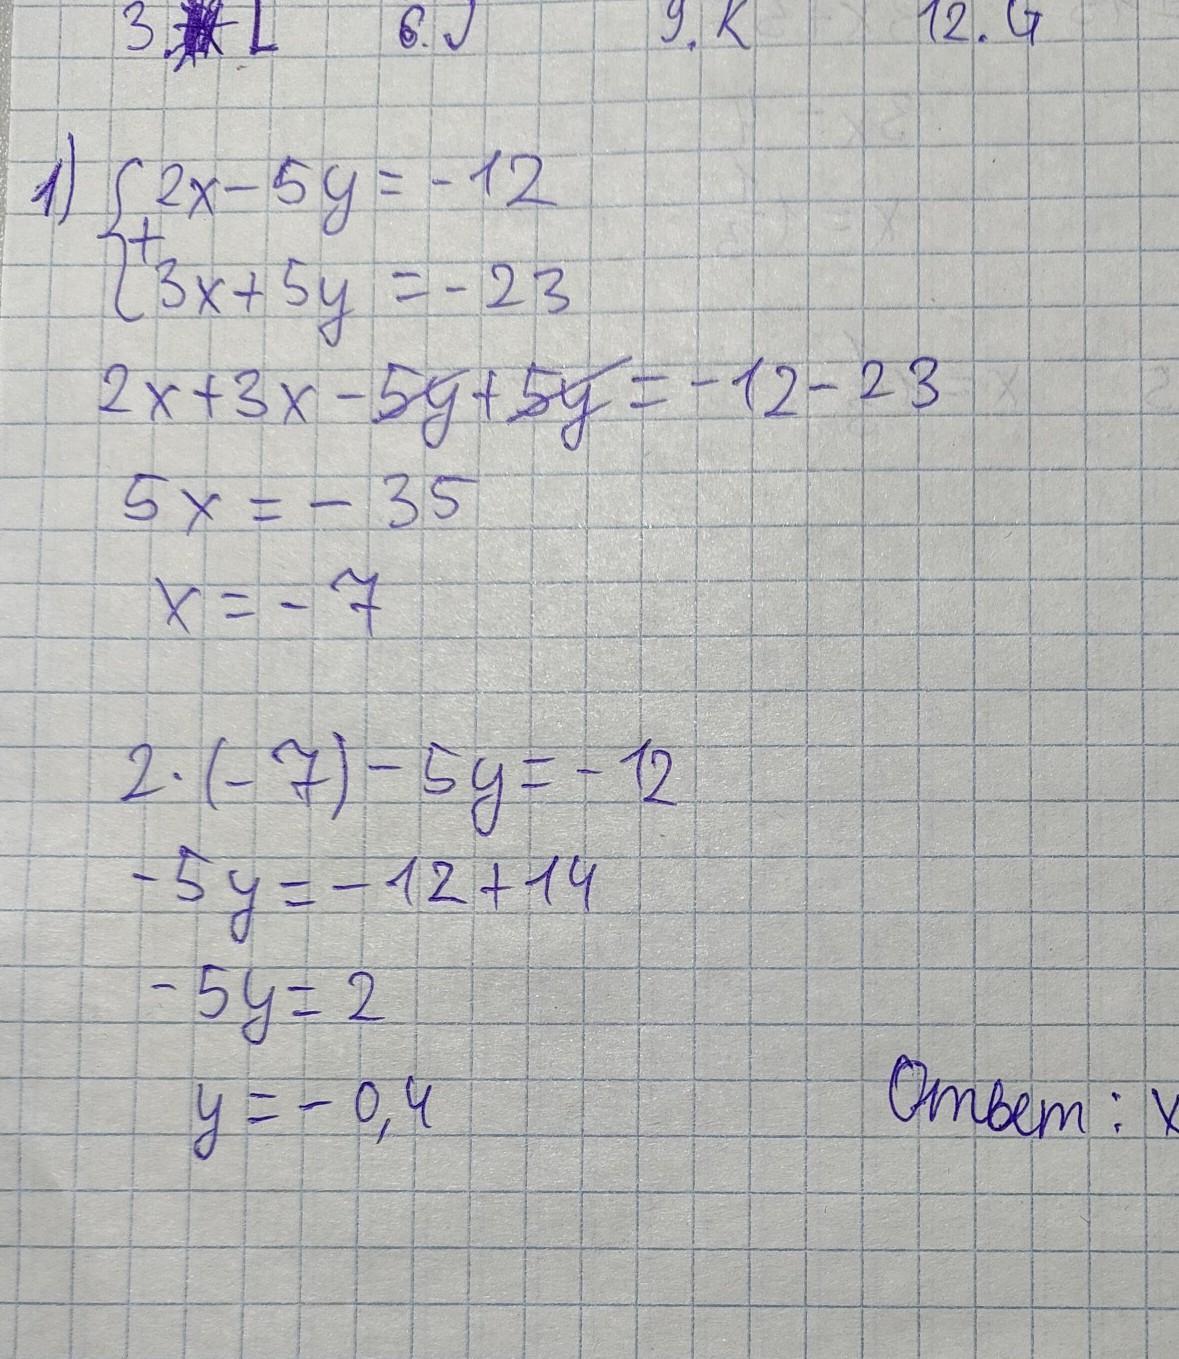 3. L 6. J 9. K 12. G
1) { 2x - 5y = -12
+
3x + 5y = -23
2x + 3x - 5y + 5y = -12 - 23
5x = - 35
x = - 7
2 · (- 7) - 5y = - 12
- 5y = - 12 + 14
- 5y = 2
y = - 0,4
Ответ : x